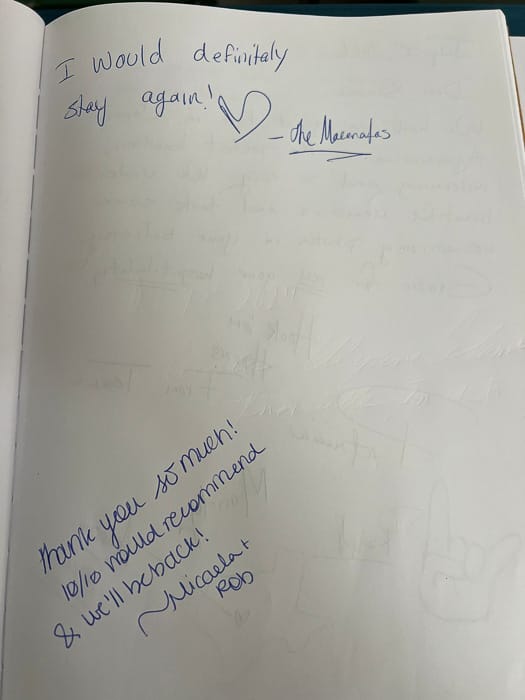 I would definitaly
stay again!
- the
thank you so much!
10/10 would recommend
& we'll be back!
~Micaela +
ROb